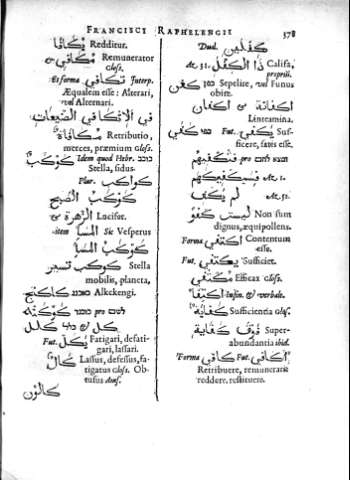 FRANCISCI RAPHELENGII 378
يكافا Redditur.
مكافي & Remunerator
Glos.
Et forma تكافي Interp.
Æqualem esse: Alterari,
vel Alternari.
في الاتكافي الضيعات.
مكافاة Retributio,
merces, præmium Glos.
كوكب Idem quod Hebr. כוכב
Stella, sidus.
Plur. كواكب
كوكب الصبح
& الزهرة Lucifer.
item المسا Sic Vesperus
كوكب المسا
كوكب تسير Stella
mobilis, planeta,
كاكنج Alkekengi.
pro
كل & כלל كلل
Fut. يكل Fatigari, defati-
gari, lassari.
كال Lassus, defessus, fa-
tigatus Glos. Ob-
tusus
كالون
Dual. كفلين
Act. 51. ذا الكفل Califa,
proprii.
كفن כפן Sepelire, vel Funus
obire.
اكفانة & اكفان
Linteamina.
كفي Fut. يكفي Suf-
ficere, satis esse.
pro فتكفيهم
فسيكفيكهم Act. 1.
لم يكف Act. 51.
ليس كفو Non sum
dignus, æquipollens.
Forma اكتفي Contentum
esse.
Fut. يكتفي Sufficiet.
مكتفي Efficax Glos.
اكتفا Infin. & verbale.
كفاية Sufficientia Glos.
فوق كفاية Super-
abundantia ibid.
Forma كافي Fut. اكافي
Retribuere, remunerari
reddere, restituere.